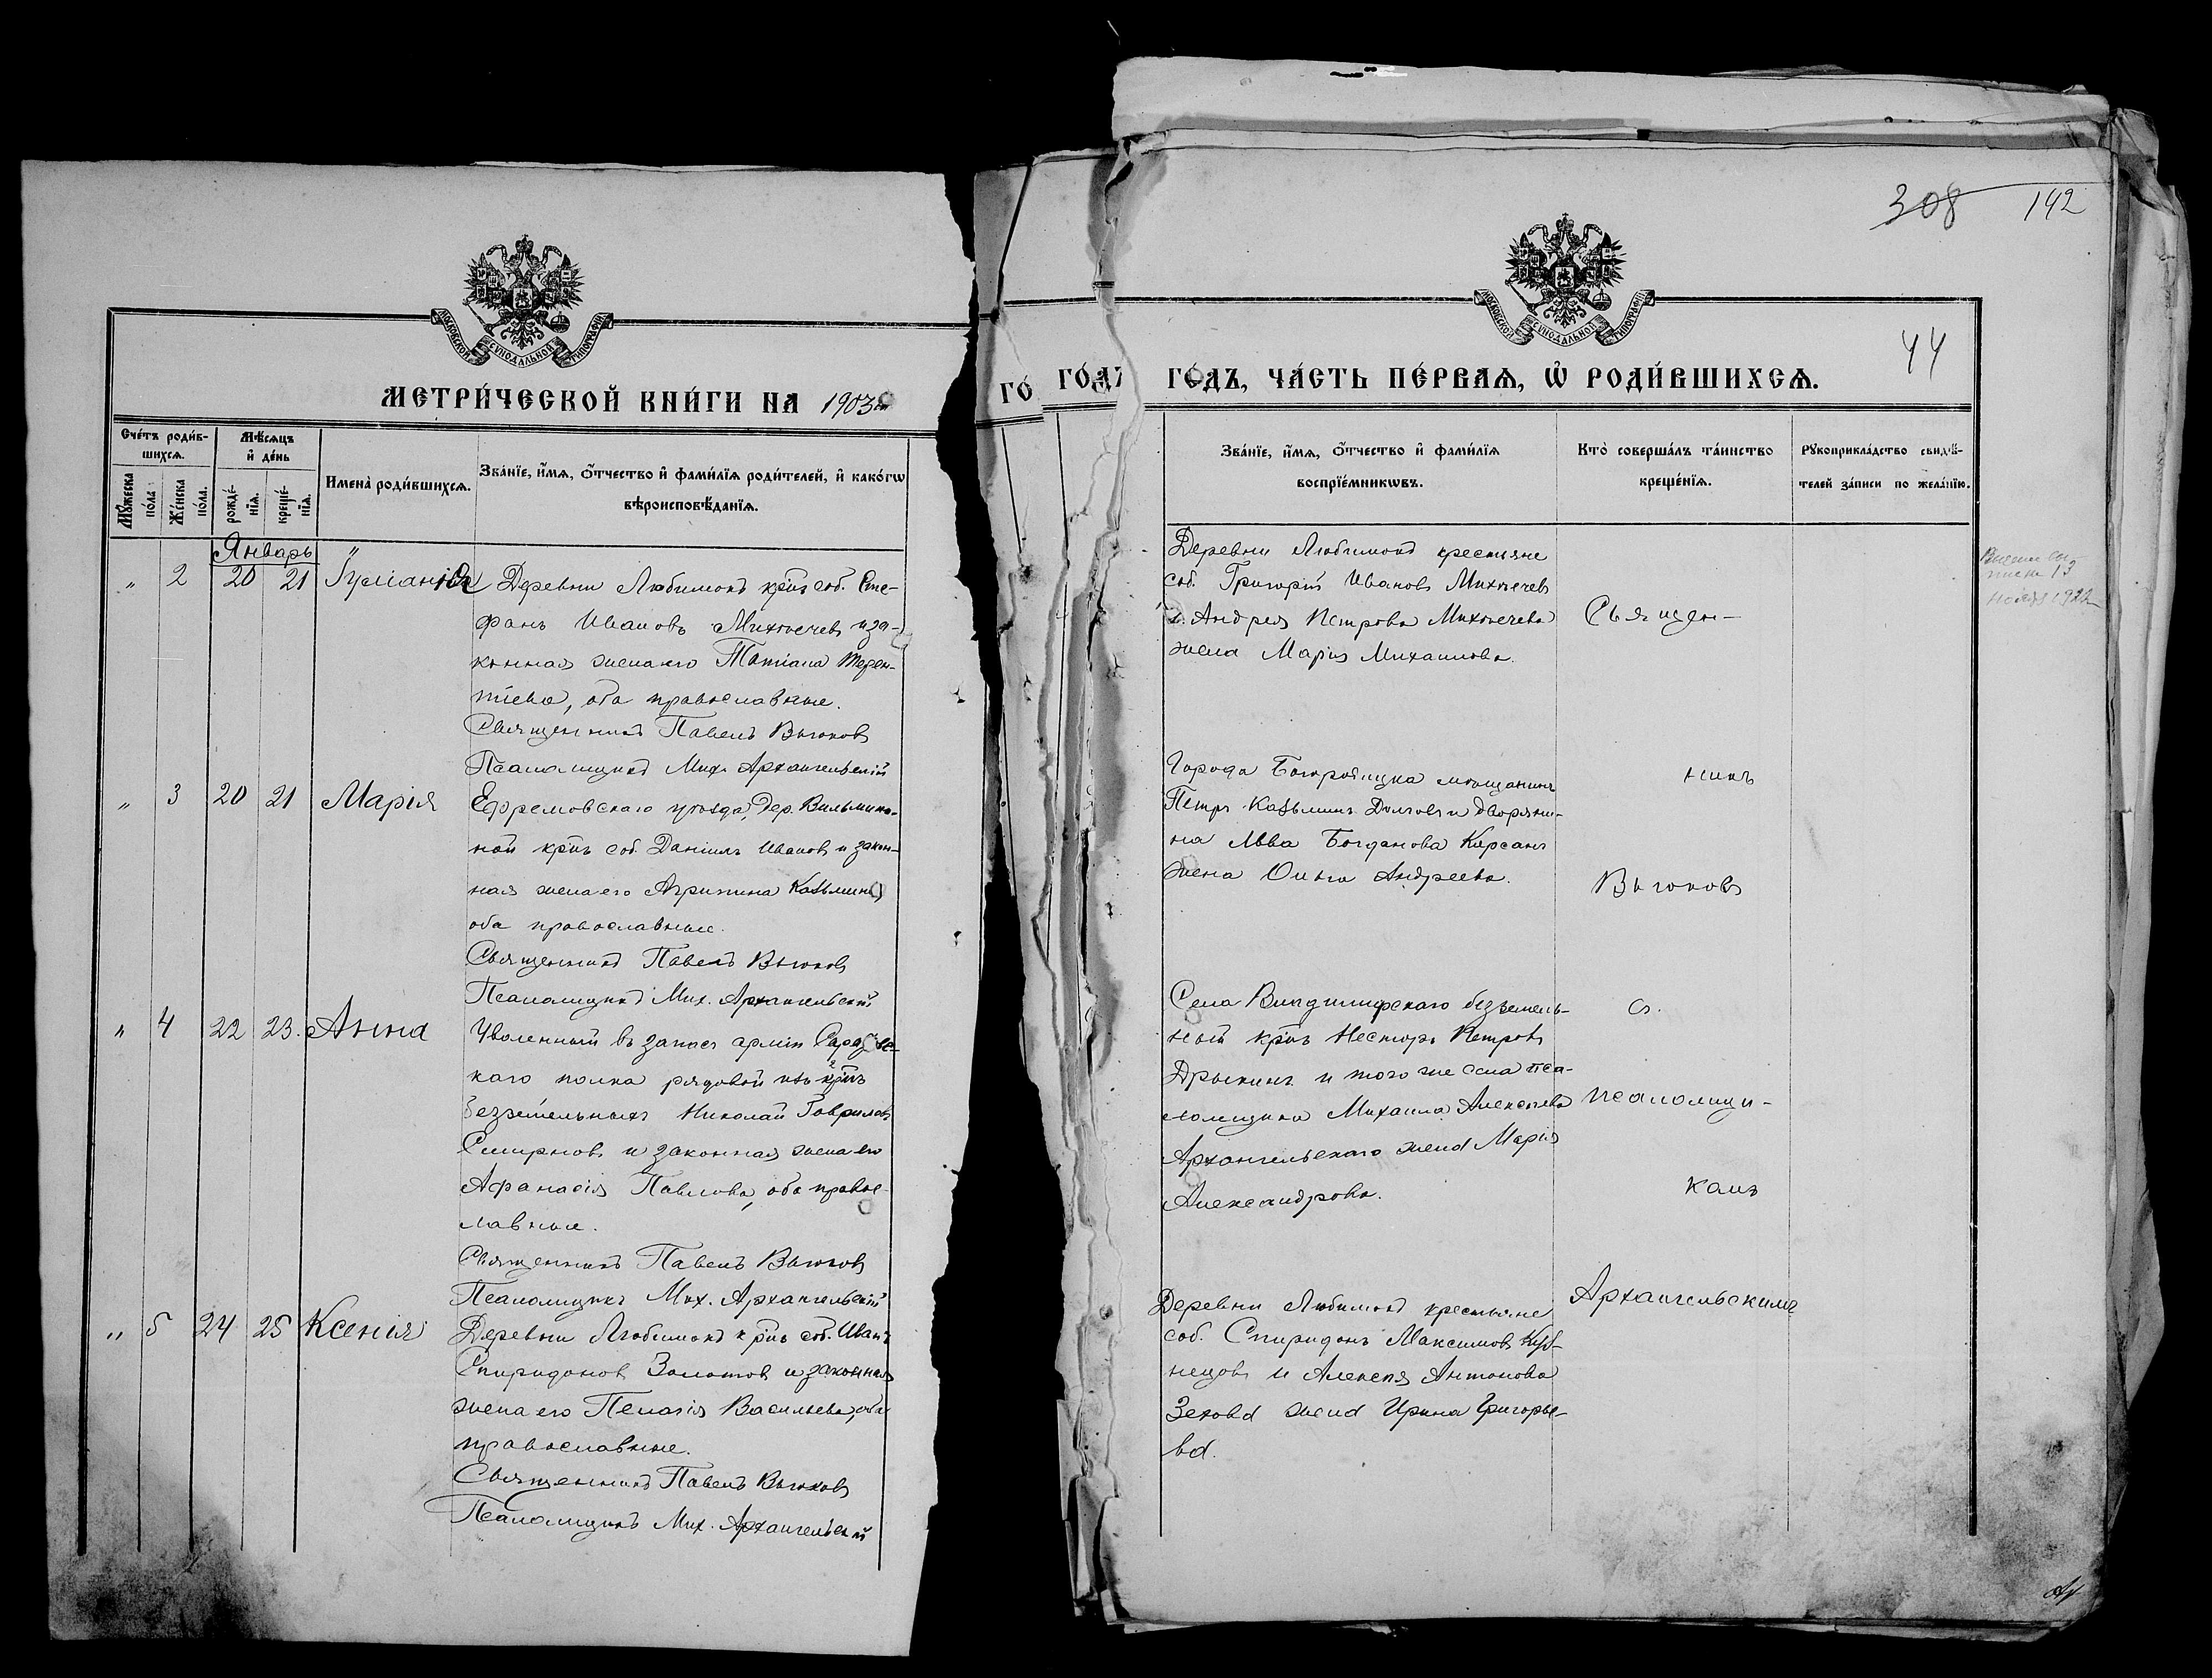 308 142
44
МОСКОВСКОЙ СУНОДАЛЬНОЙ ТИПОГРАФІИ
МЕТРИ́ЧЕСКОЙ КНИ́ГИ НА 1903
Сче́тъ роди́в-
шихсѧ.
Мꙋ́жеска по́ла.
Же́нска по́ла.
Мѣ́сѧцъ
и҆ де́нь
рожде́-
нїѧ.
креще́-
нїѧ.
И҆мена̀ роди́вшихсѧ.
Зва́нїе, и҆́мѧ, ѻ҆́тчество и҆ фами́лїѧ роди́телей, и҆ како́гѡ
вѣроисповѣ́данїѧ.
Январь
" 2 20 21 Іуліанія
Деревни Любимовки кр͠нъ соб. Сте-
фанъ Ивановъ Михѣечевъ и за-
конная жена его Татіана Терен-
тіева, оба православные.
Священникъ Павелъ Вьюковъ
Псаломщикъ Мих. Архангельскій
" 3 20 21 Марія
Ефремовскаго уѣзда, Дер.
ной кр͠нъ соб. Даніилъ Ивановъ и закон-
ная жена его Агрипина Козьмина,
оба православные.
Священникъ Павелъ Вьюковъ
Псаломщикъ Мих. Архангельскій
" 4 22 23. Анна
Уволенный въ запасъ арміи
каго полка рядовой изъ кр͠нъ
безземельныхъ Николай Гавриловъ
Смирновъ и законная жена его
Афанасія Павлова, оба правос-
лавные.
Священникъ Павелъ Вьюковъ
Псаломщикъ Мих. Архангельскій
" 5 24 25 Ксенія
Деревни Любимовки кр͠нъ соб. Иванъ
Спиридоновъ Золотовъ и законная
жена его Пелагія Васильева, оба
православные.
Священникъ Павелъ Вьюковъ
Псаломщикъ Мих. Архангельскій
ГО́
ГО́ДЪ
МОСКОВСКОЙ СУНОДАЛЬНОЙ ТИПОГРАФІИ
ГО́ДЪ, ЧА́СТЬ ПЕ́РВАѦ, Ѡ҆ РОДИ́ВШИХСѦ.
Зва́нїе, и҆́мѧ, ѻ҆́тчество и҆ фами́лїѧ
воспрїе́мникѡвъ.
Кто̀ соверша́лъ та́инство
креще́нїѧ.
Рꙋкоприкла́дство свидѣ́-
телей за́писи по жела́нїю.
Деревни Любимовки крестьяне
соб. Григорій Ивановъ Михѣечевъ
и Андрея Петрова Михѣечева
жена Марія Михаилова.
Города Богородицка мѣщанинъ
Петръ Козьминъ Долговъ и дворяни-
на Льва Богданова Кирсанъ
жена Ольга Андреева.
Села Владимірскаго безземель-
ный кр͠нъ Несторъ Петровъ
Дрыкинъ и того же села пса-
ломщика Михаила Алексѣева
Архангельскаго жена Марія
Александрова.
Деревни Любимовки крестьяне
соб. Спиридонъ Максимовъ Куз-
нецовъ и Алексѣя Антонова
Зехова жена Ирина Григорье-
ва.
Священ-
никъ
Вьюковъ
съ
псаломщи-
комъ
Архангельскимъ